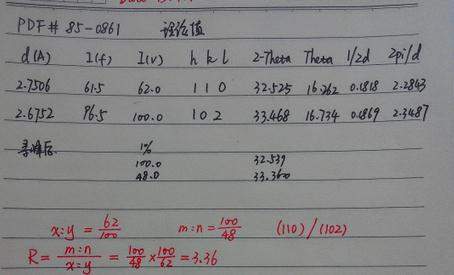 PDF# 85-0861 理论值
d(A) I(f) I(v) h k l 2-Theta Theta 1/2d 2pi/d
2.7506 61.5 62.0 1 1 0 32.525 16.262 0.1818 2.2843
2.6752 96.5 100.0 1 0 2 33.468 16.734 0.1869 2.3487
寻峰后 I%
100.0 32.539
48.0 33.360
x:y = 62/100 m:n = 100/48 (110)/(102)
R = m:n/x:y = 100/48 × 100/62 = 3.36